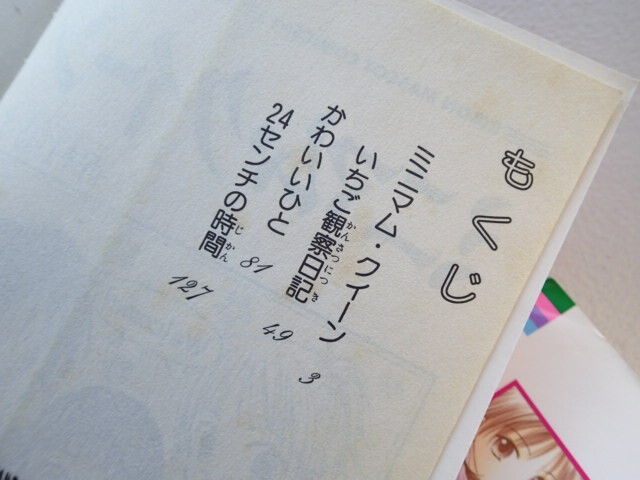 もくじ
ミニマム・クイーン 3
いちご観察日記 49
かわいいひと 81
24センチの時間 127